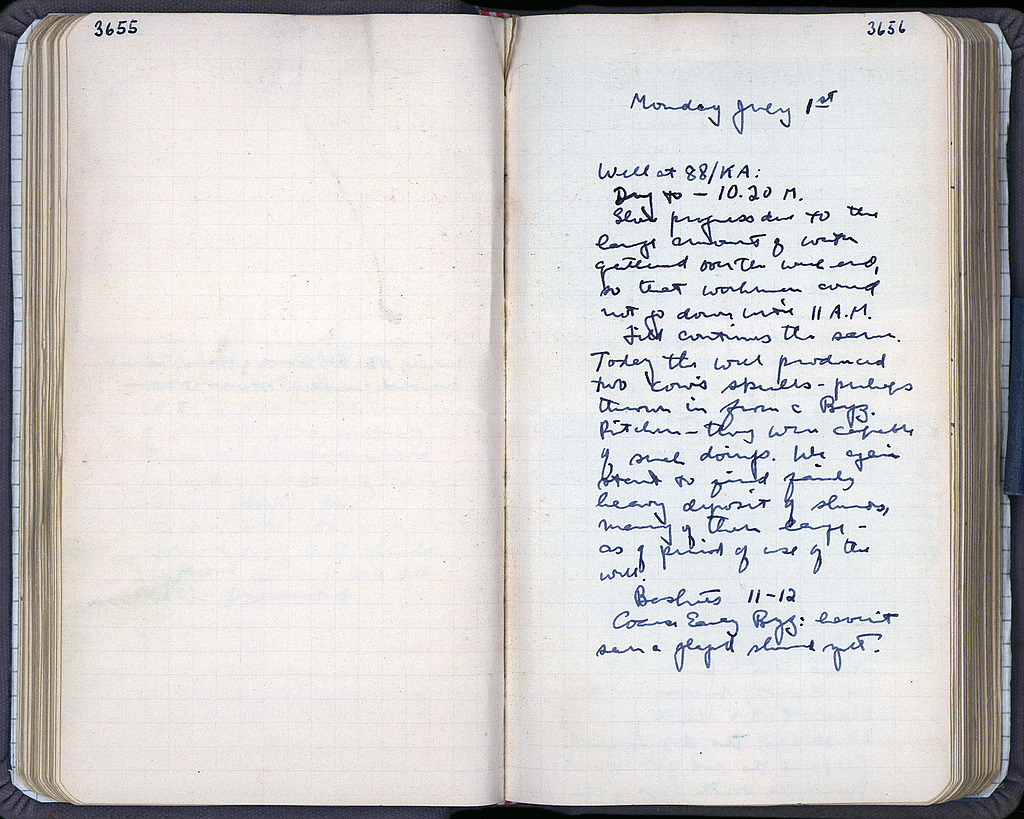 3655
3656
Monday July 1st
Well at 88/KA:
Dug to – 10.20 M.
Slow progress due to the
large amounts of water
gathered over the week end,
so that workmen could
not go down until 11 A.M.
Fill continues the same.
Today the well produced
two cow's skulls – perhaps
thrown in from a Byz.
Pitcher – they were capable
of such doings. We again
start to find fairly
heavy deposit of sherds,
many of them large –
as of period of use of the
well.
Baskets 11–12
Coarse Early Byz: haven't
seen a glazed sherd yet.